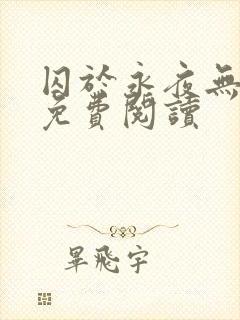 囚於永夜無
免費閱讀
畢飛宇